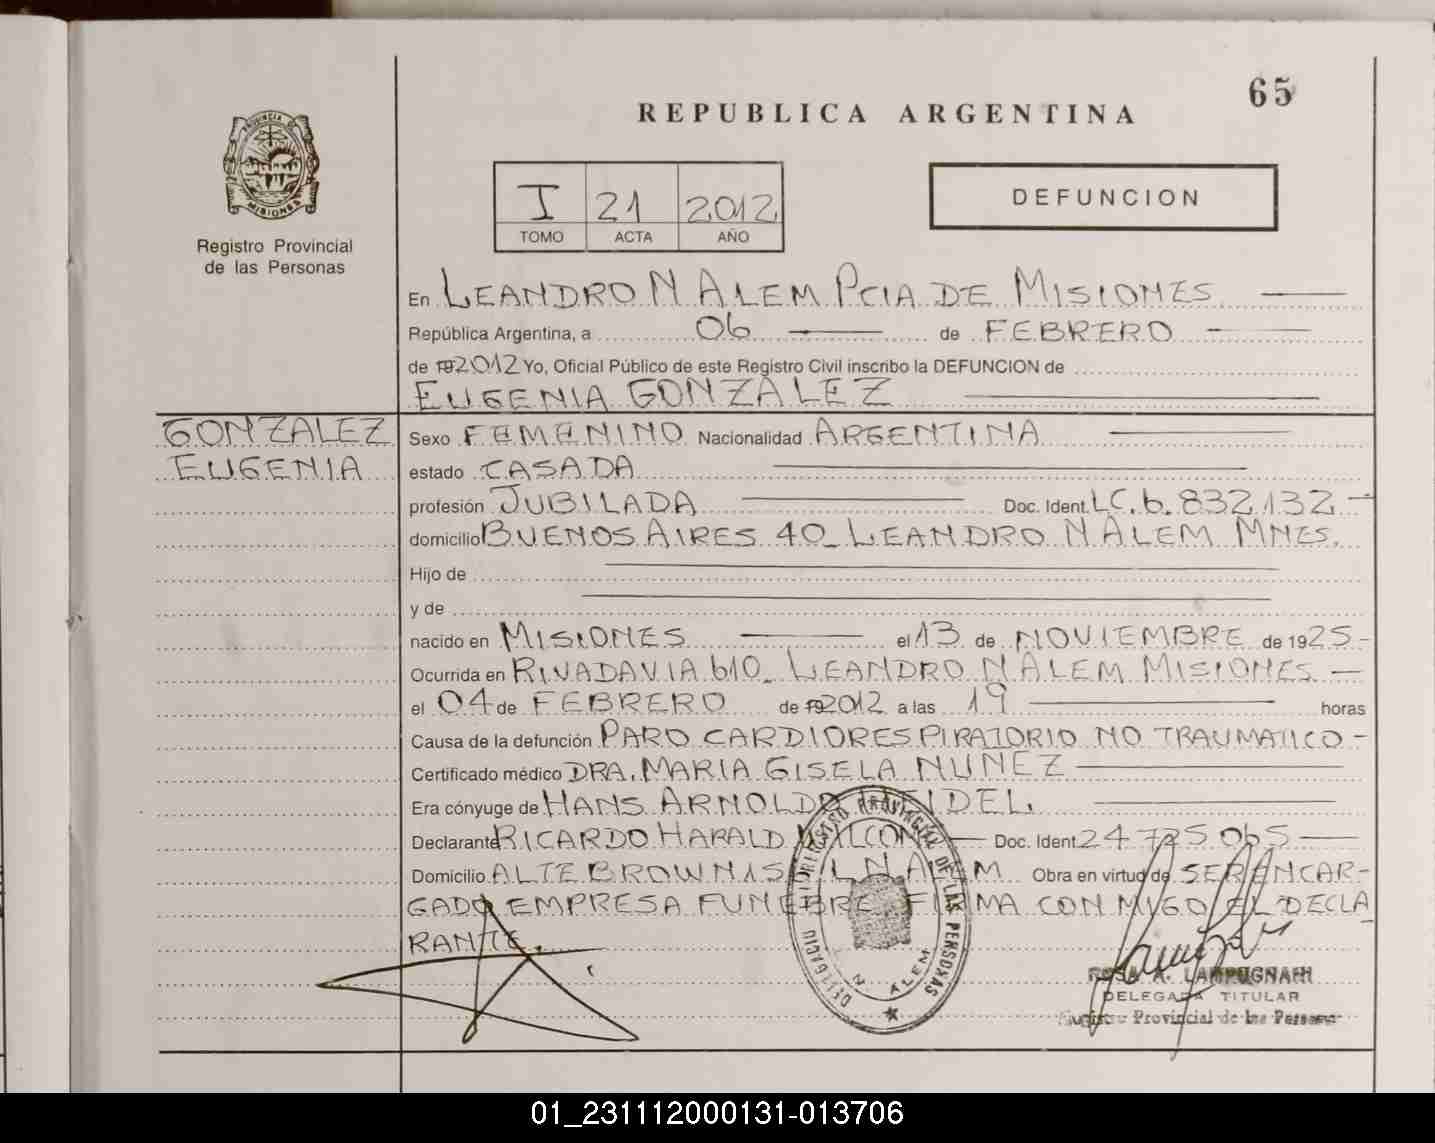 65
REPUBLICA ARGENTINA
PROVINCIA DE
MISIONES
Registro Provincial
de las Personas
I 21 2012
TOMO ACTA AÑO
DEFUNCION
En LEANDRO N ALEM PCIA DE MISIONES
República Argentina, a 06 de FEBRERO
de 192012 Yo, Oficial Público de este Registro Civil inscribo la DEFUNCION de
EUGENIA GONZALEZ
GONZALEZ
EUGENIA
Sexo FEMENINO Nacionalidad ARGENTINA
estado CASADA
profesión JUBILADA Doc. Ident. LC. 6.832.132-
domicilio BUENOS AIRES 40_ LEANDRO N ALEM MNES.
Hijo de
y de
nacido en MISIONES el 13 de NOVIEMBRE de 1925-
Ocurrida en RIVADAVIA 610_ LEANDRO N ALEM MISIONES
el 04 de FEBRERO de 192012 a las 19 horas
Causa de la defunción PARO CARDIORESPIRATORIO NO TRAUMATICO-
Certificado médico DRA. MARIA GISELA NUNEZ
Era cónyuge de HANS ARNOLDO
Declarante RICARDO HARALD Doc. Ident. 24 725 065
Domicilio ALTE BROWN L N ALEM Obra en virtud de SER ENCAR-
GADO EMPRESA FUNEBRE FIRMA CONMIGO EL DECLA
RANTE.
DELEGACIO REGISTRO PROVINCIAL DE LAS PERSONAS
N. ALEM
ROSA A. LAMPUGNANI
DELEGADA TITULAR
Registro Provincial de las Personas
01_231112000131-013706